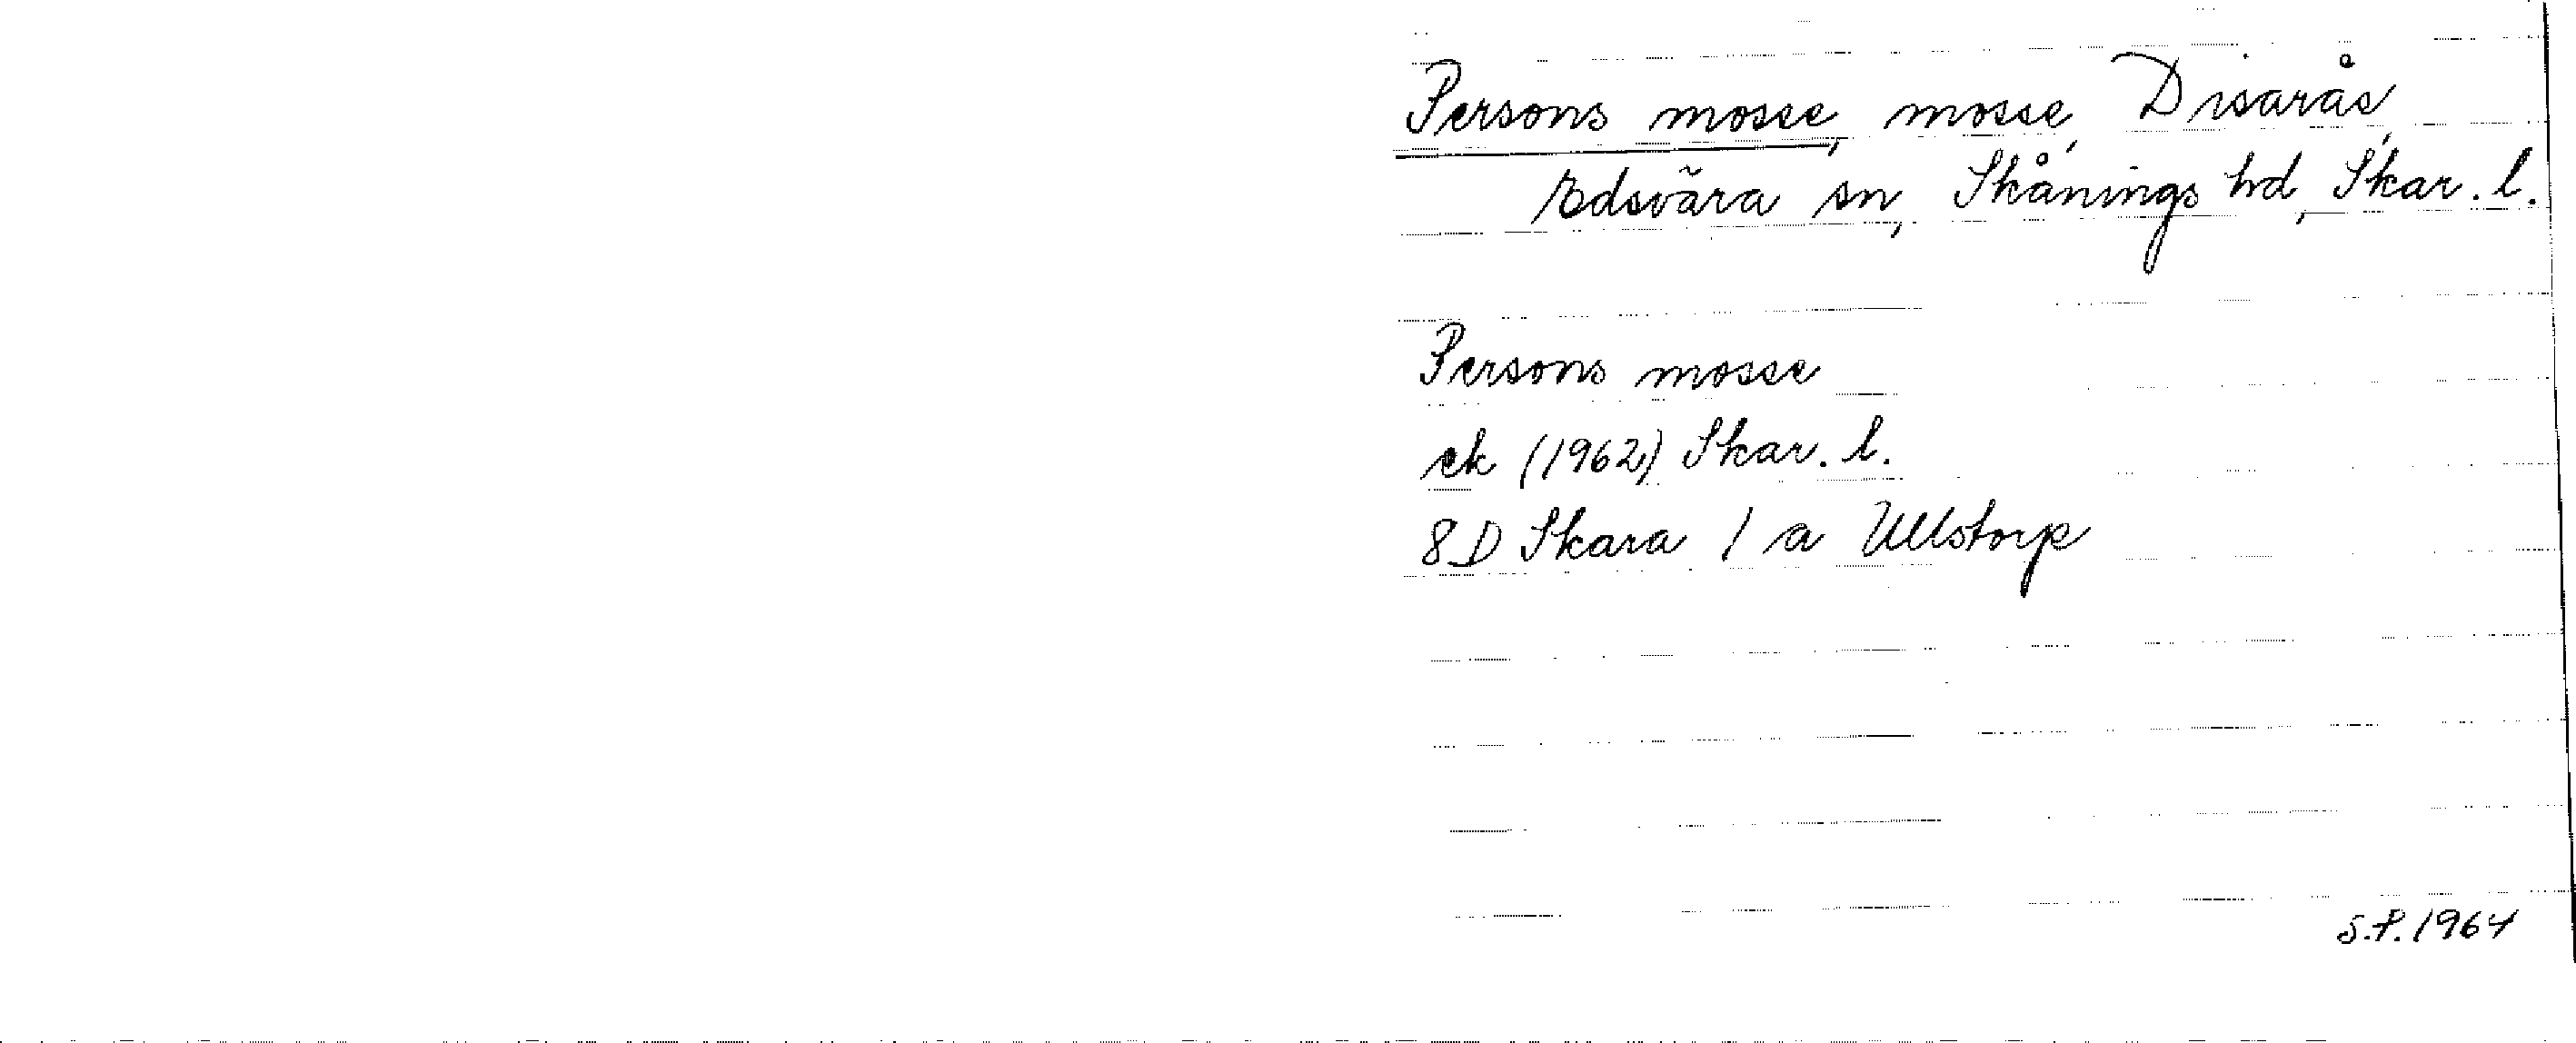 Persons mosse, mosse, Disarås,
Edsvära sn, Skånings hd, Skar. l.
Persons mosse
ek (1962) Skar. l.
8D Skara 1 a Ullstorp
S.P. 1964